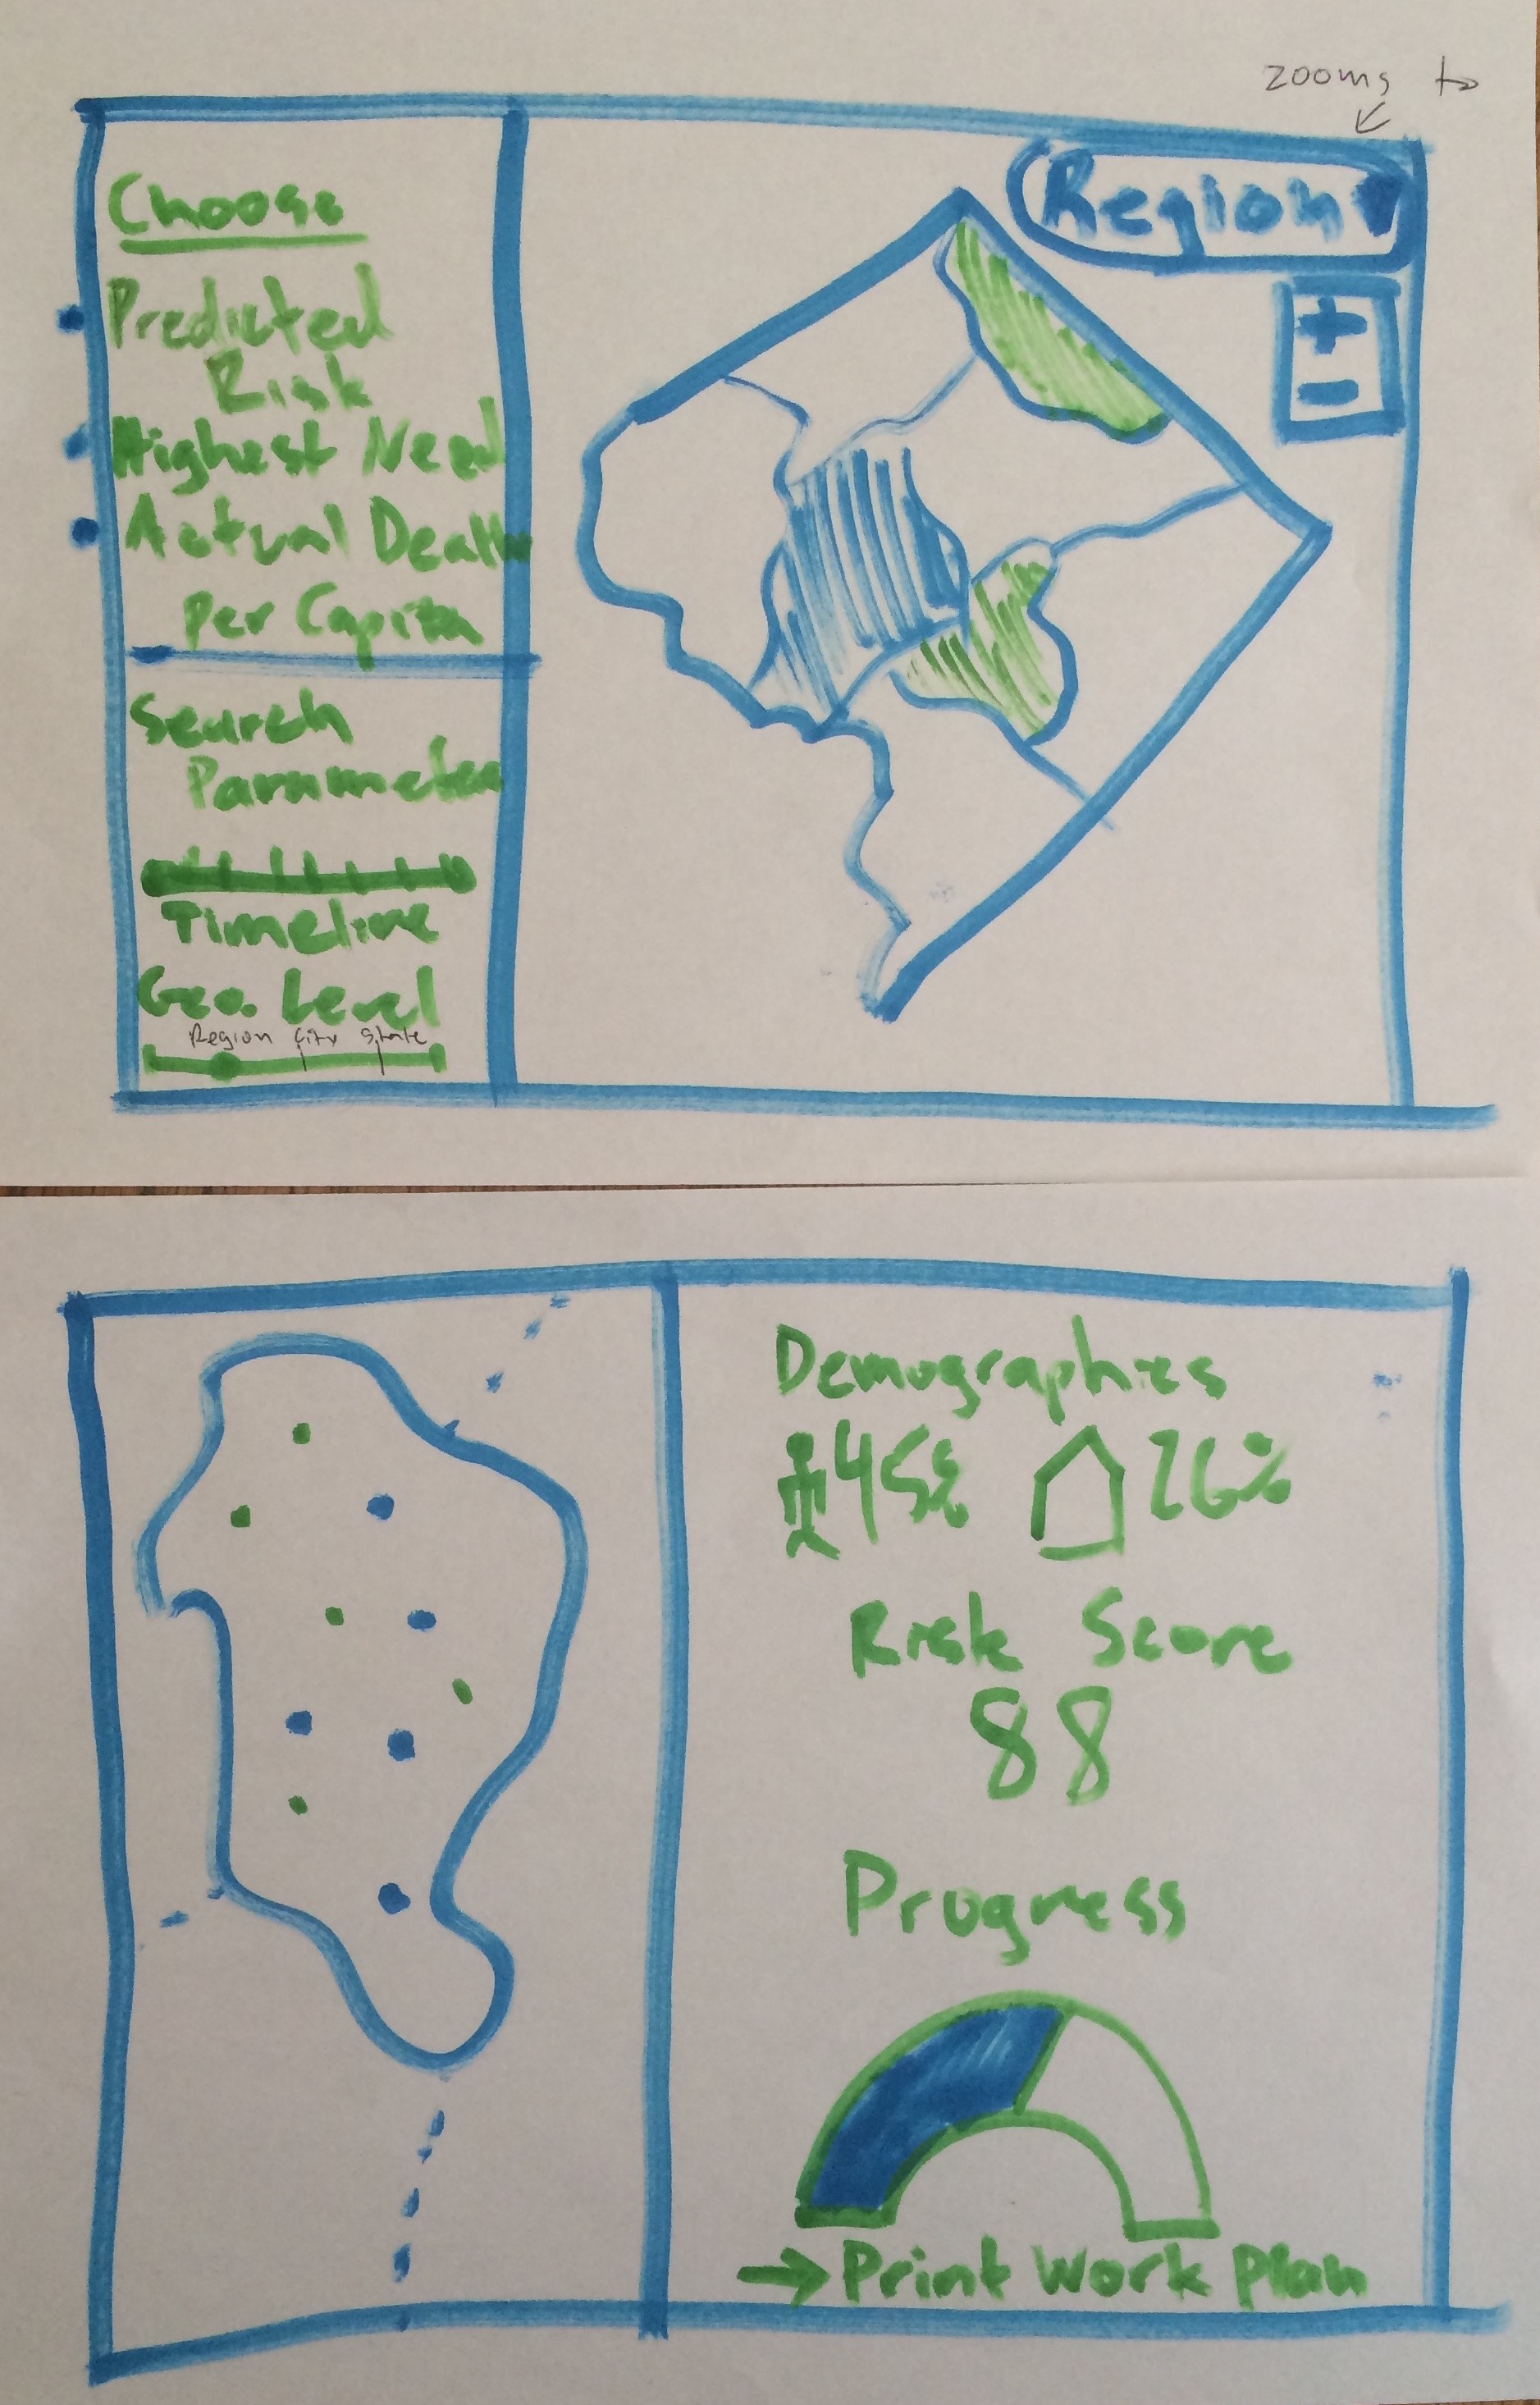 zooms to
Region
+
-
Choose
Predicted
Risk
Highest Need
Actual Death
Per Capita
Search
Parameter
Timeline
Geo. Level
Region City State
Demographics
45% 26%
Risk Score
88
Progress
→ Print Work Plan